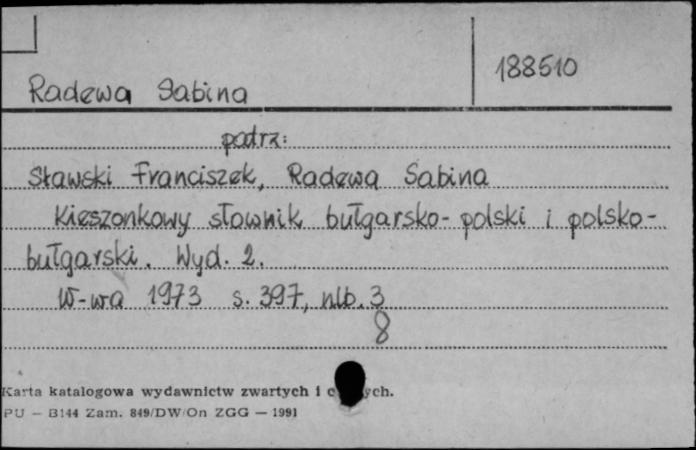 188510
Radewa Sabina
patrz:
Sławski Franciszek, Radewa Sabina
Kieszonkowy słownik bułgarsko-polski i polsko-
bułgarski. Wyd. 2.
W-wa 1973 s. 397, nlb. 3
8
Karta katalogowa wydawnictw zwartych i
PU — B144 Zam. 849/DW/On ZGG — 1991